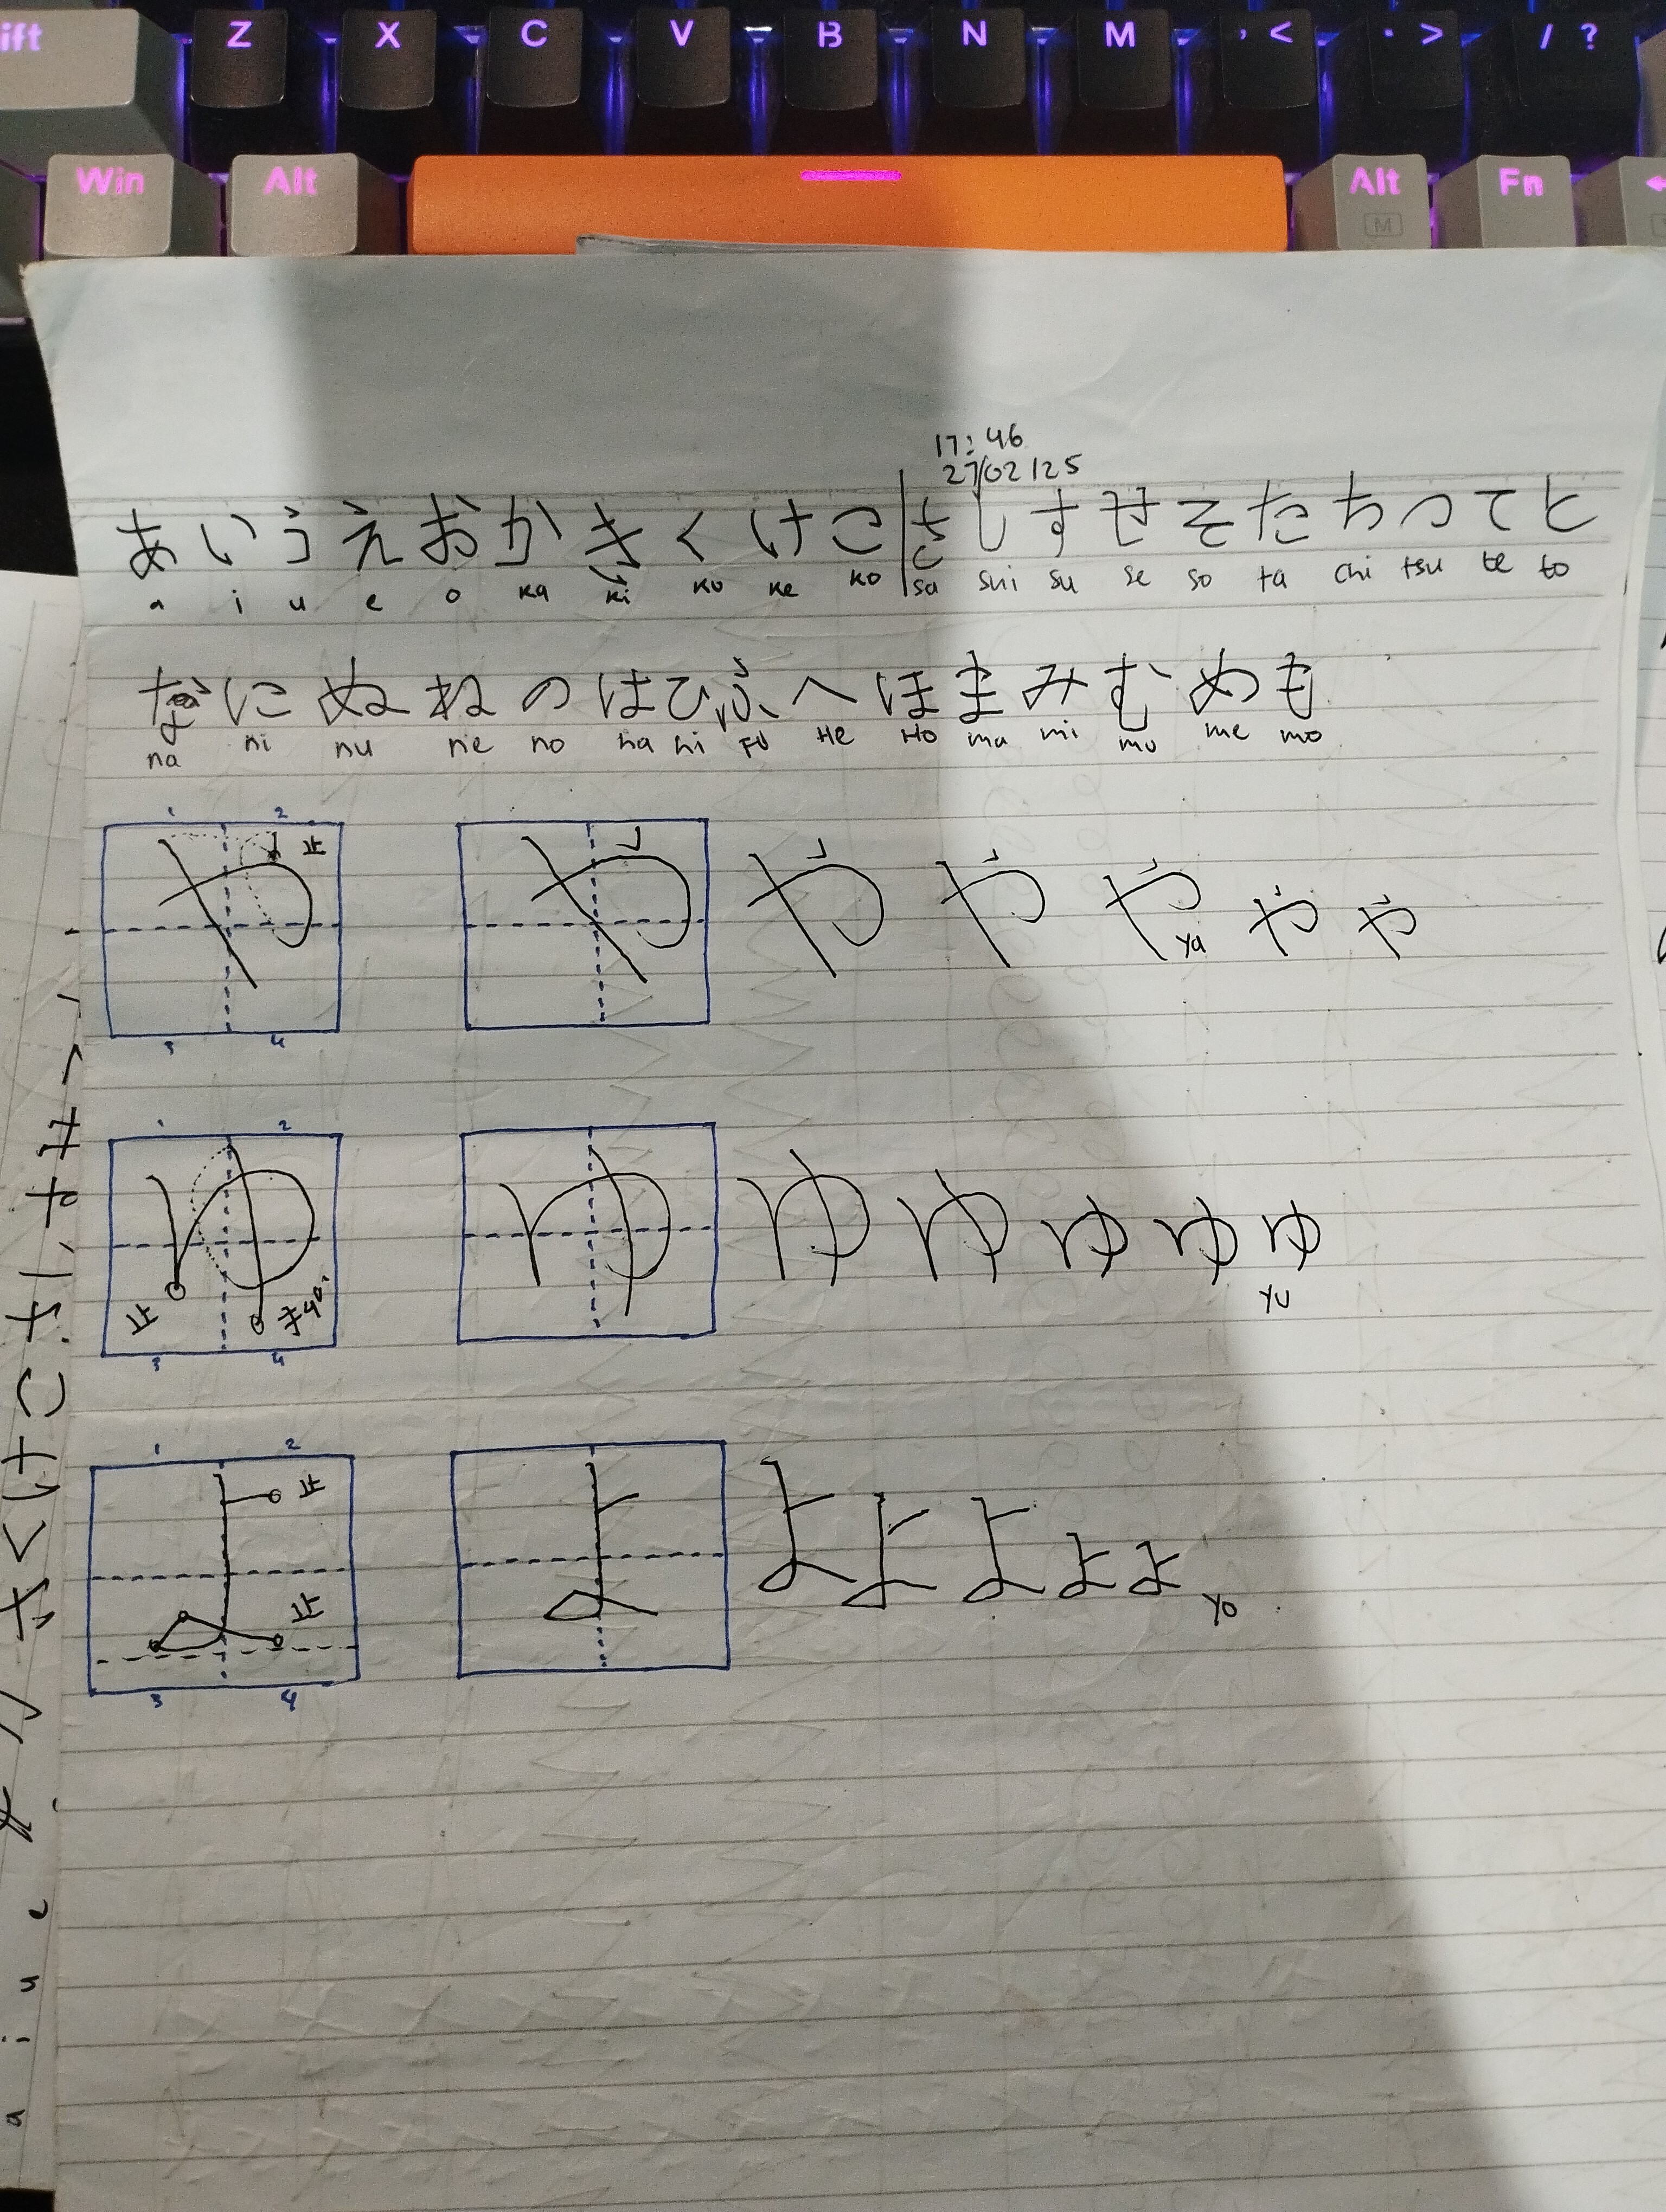 ift Z X C V B N M , < . > / ?
Win Alt Alt Fn
M
17:46
27/02/25
あいうえおかきくけこさしすせそたちつてと
a i u e o ka ki ku ke ko sa shi su se so ta chi tsu te to
なにぬねのはひふへほまみむめも
na ni nu ne no ha hi FU He Ho ma mi mu me mo
1 2
止
や や や や や や や
ya
3 4
1 2
ゆ ゆ ゆ ゆ ゆ ゆ ゆ
止
yu
3 4
1 2
止
よ よ よ よ よ よ よ
止
yo
3 4
a i u e